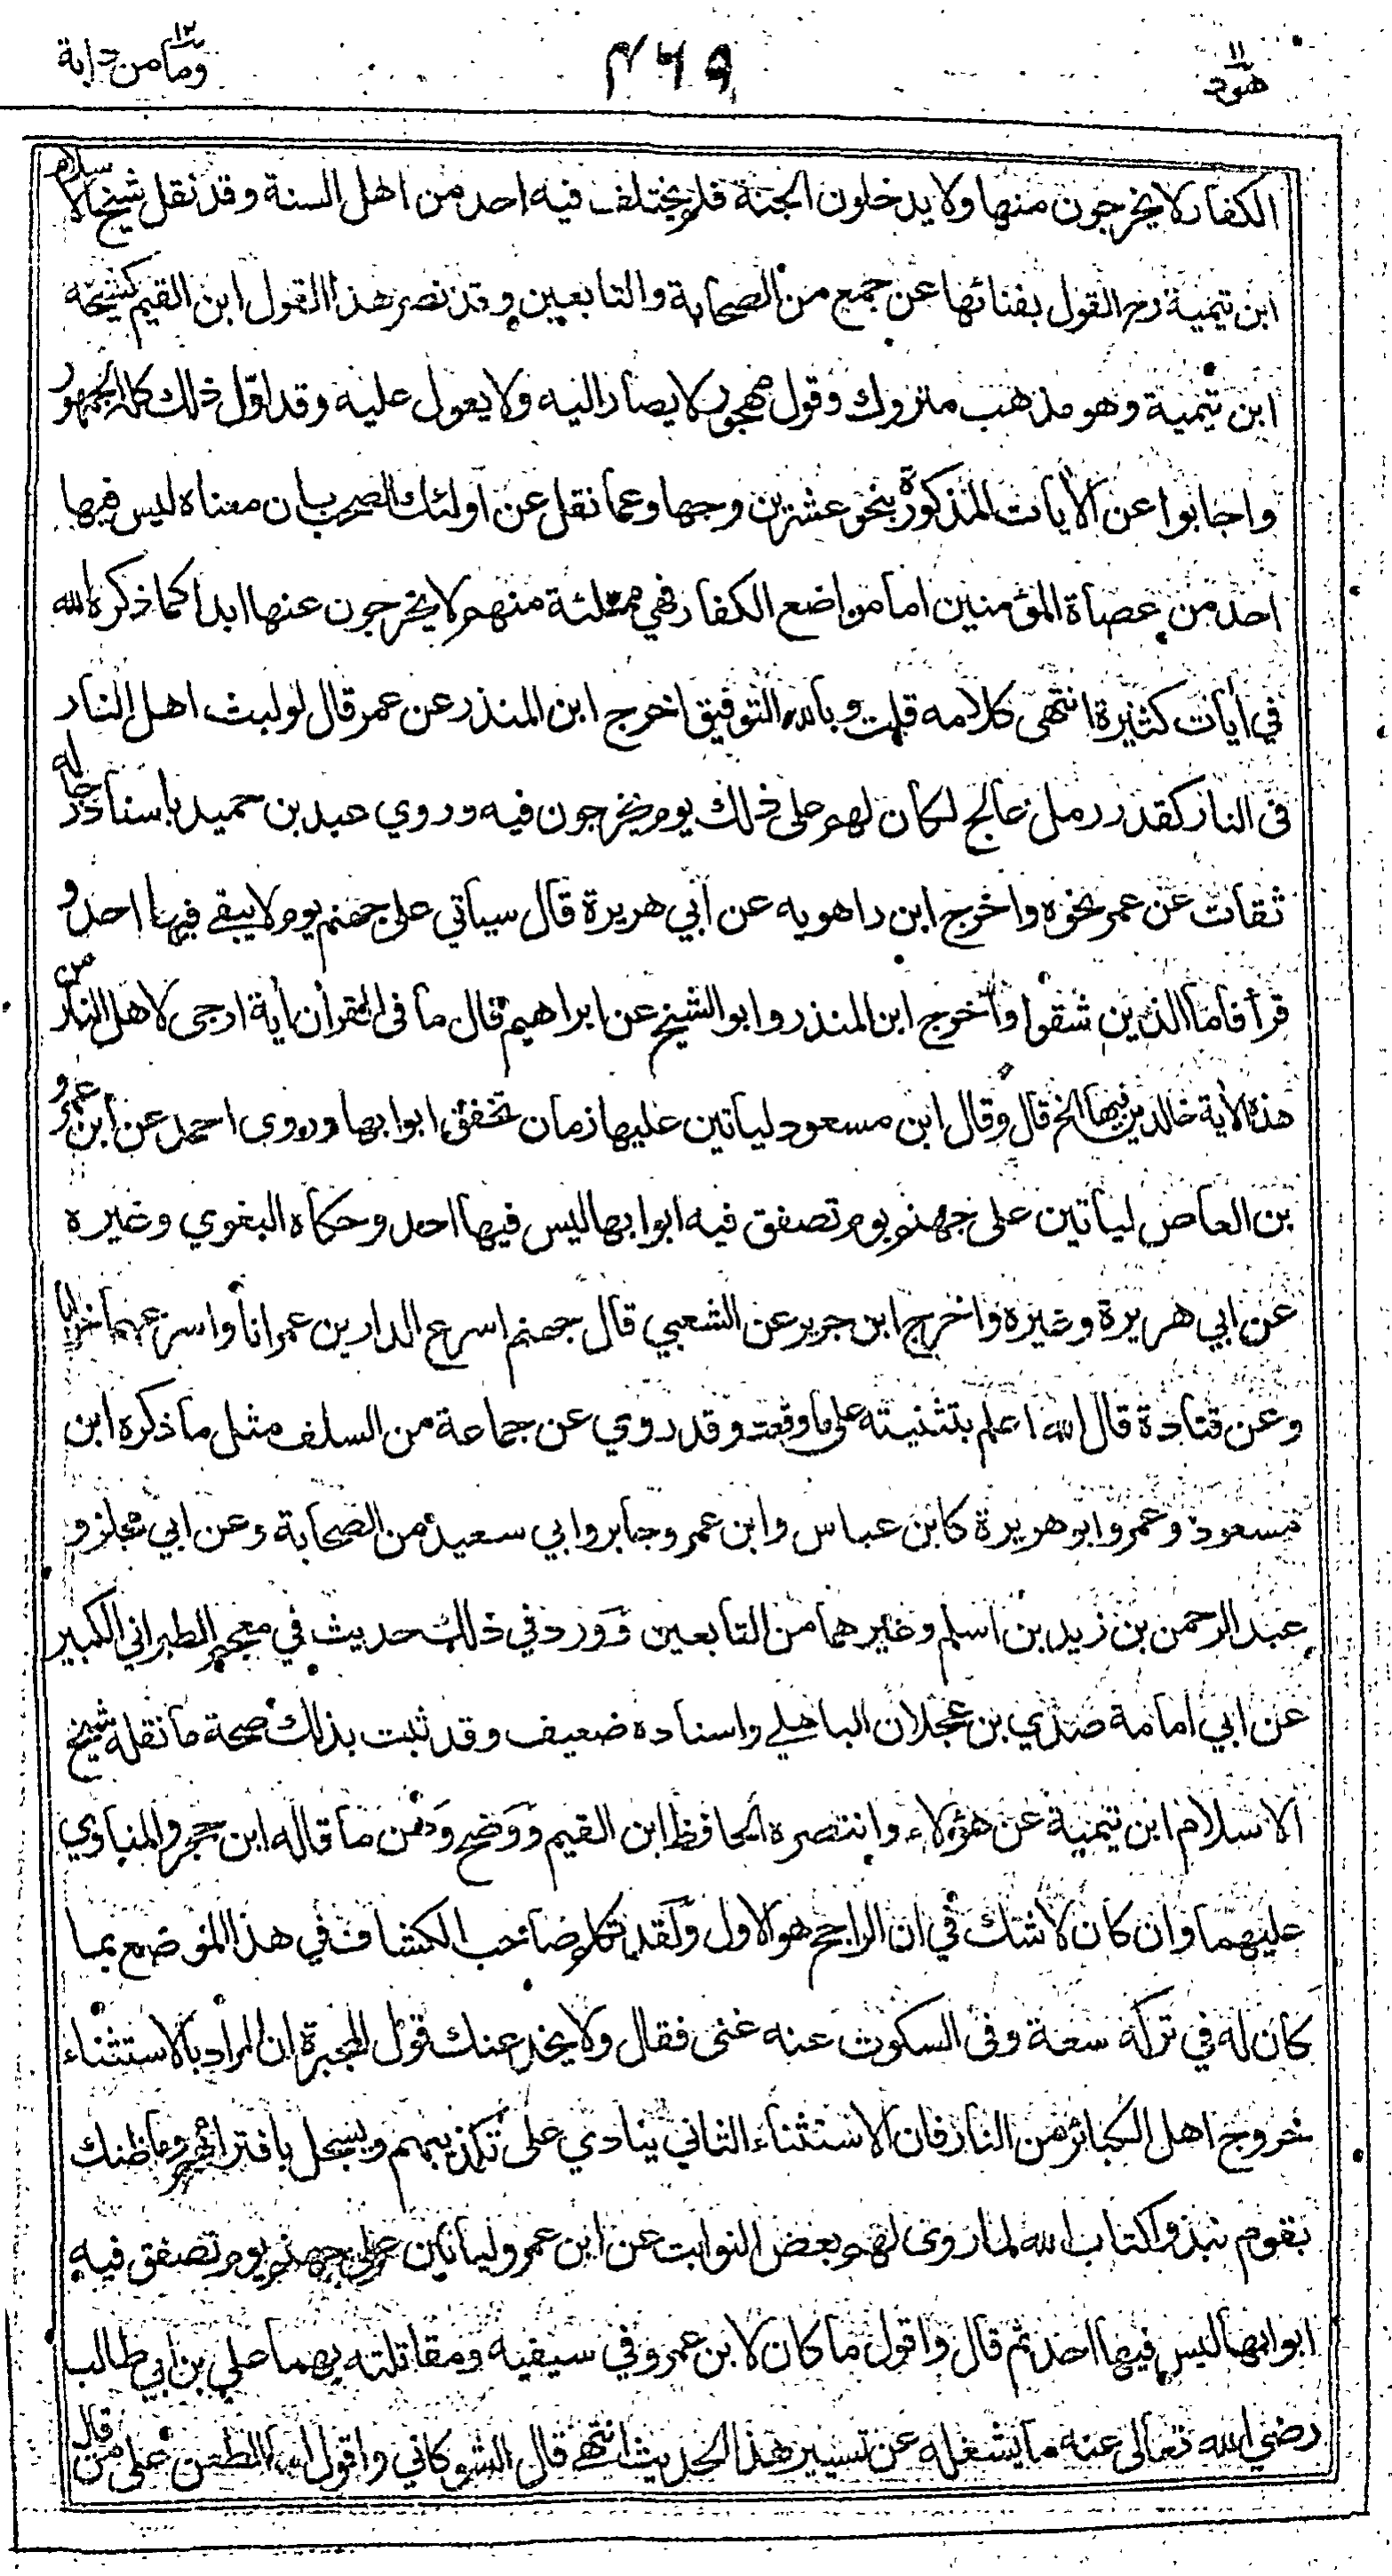 هود ١١
٤٦٩
وما من دابة ١٢
الكفار لا يخرجون منها ولا يدخلون الجنة فلم يختلف فيه احد من اهل السنة وقد نقل شيخ الاسلام
ابن تيمية رح القول بفنائها عن جمع من الصحابة والتابعين وقد نصر هذا القول ابن القيم كشيخه
ابن تيمية وهو مذهب متروك وقول مهجور لا يصار اليه ولا يعول عليه وقد اوّل ذلك كله الجمهور
واجابوا عن الأيات المذكورة بنحو عشرين وجها وعما نقل عن اولئك الصحب بان معناه ليس فيها
احد من عصاة المؤمنين اما مواضع الكفار فهي ممتلئة منهم لا يخرجون عنها ابدا كما ذكره الله
في أيات كثيرة انتهى كلامه قلت وبالله التوفيق اخرج ابن المنذر عن عمر قال لو لبث اهل النار
فى النار كقدر رمل عالج لكان لهم على ذلك يوم يخرجون فيه وروي عبد بن حميد باسناد رجاله
ثقات عن عمر نحوه واخرج ابن راهويه عن ابي هريرة قال سياتي على جهنم يوم لا يبقے فيها احد و
قرأ فاما الذين شقوا واخرج ابن المنذر وابو الشيخ عن ابراهيم قال ما فى القرأن أية ارجى لاهل النار من
هذه الأية خالدين فيها الخ قال وقال ابن مسعود لياتين عليها زمان تخفق ابوابها وروى احمد عن ابن عمرو
بن العاص لياتين على جهنم يوم تصفق فيه ابوابها ليس فيها احد وحكاه البغوي وغيره
عن ابي هريرة وغيره واخرج ابن جرير عن الشعبي قال جهنم اسرع الدارين عمرانا واسرعهما خرابا
وعن قتادة قال الله اعلم بتثنيته على ما وقعت وقد روي عن جماعة من السلف مثل ما ذكره ابن
مسعود وعمر وابو هريرة كابن عباس وابن عمر وجابر وابي سعيد من الصحابة وعن ابي مجلز و
عبد الرحمن بن زيد بن اسلم وغيرهما من التابعين وورد في ذلك حديث في معجم الطبراني الكبير
عن ابي امامة صدي بن عجلان الباهلے واسناده ضعيف وقد ثبت بذلك صحة ما نقله شيخ
الاسلام ابن تيمية عن هؤلاء وانتصره الحافظ ابن القيم ووضح وهن ما قاله ابن حجر والمناوي
عليهما وان كان لا شك في ان الراجح هو الاول ولقد تكلم صاحب الكشاف في هذا الموضع بما
كان له في تركه سعة وفى السكوت عنه غنى فقال ولا يخدعنك قول المجبرة ان المراد بالاستثناء
خروج اهل الكبائر من النار فان الاستثناء الثاني ينادي على تكذيبهم ويسجل بافترائهم وما ظنك
بقوم نبذوا كتاب الله لما روى لهم بعض النوابت عن ابن عمرو لياتين على جهنم يوم تصفق فيه
ابوابها ليس فيها احد ثم قال واقول ما كان لابن عمرو في سيفيه ومقاتلته بهما علي بن ابي طالب
رضي الله تعالى عنه ما يشغله عن تسيير هذا الحديث انتهے قال الشوكاني واقول اما الطعن على من قال